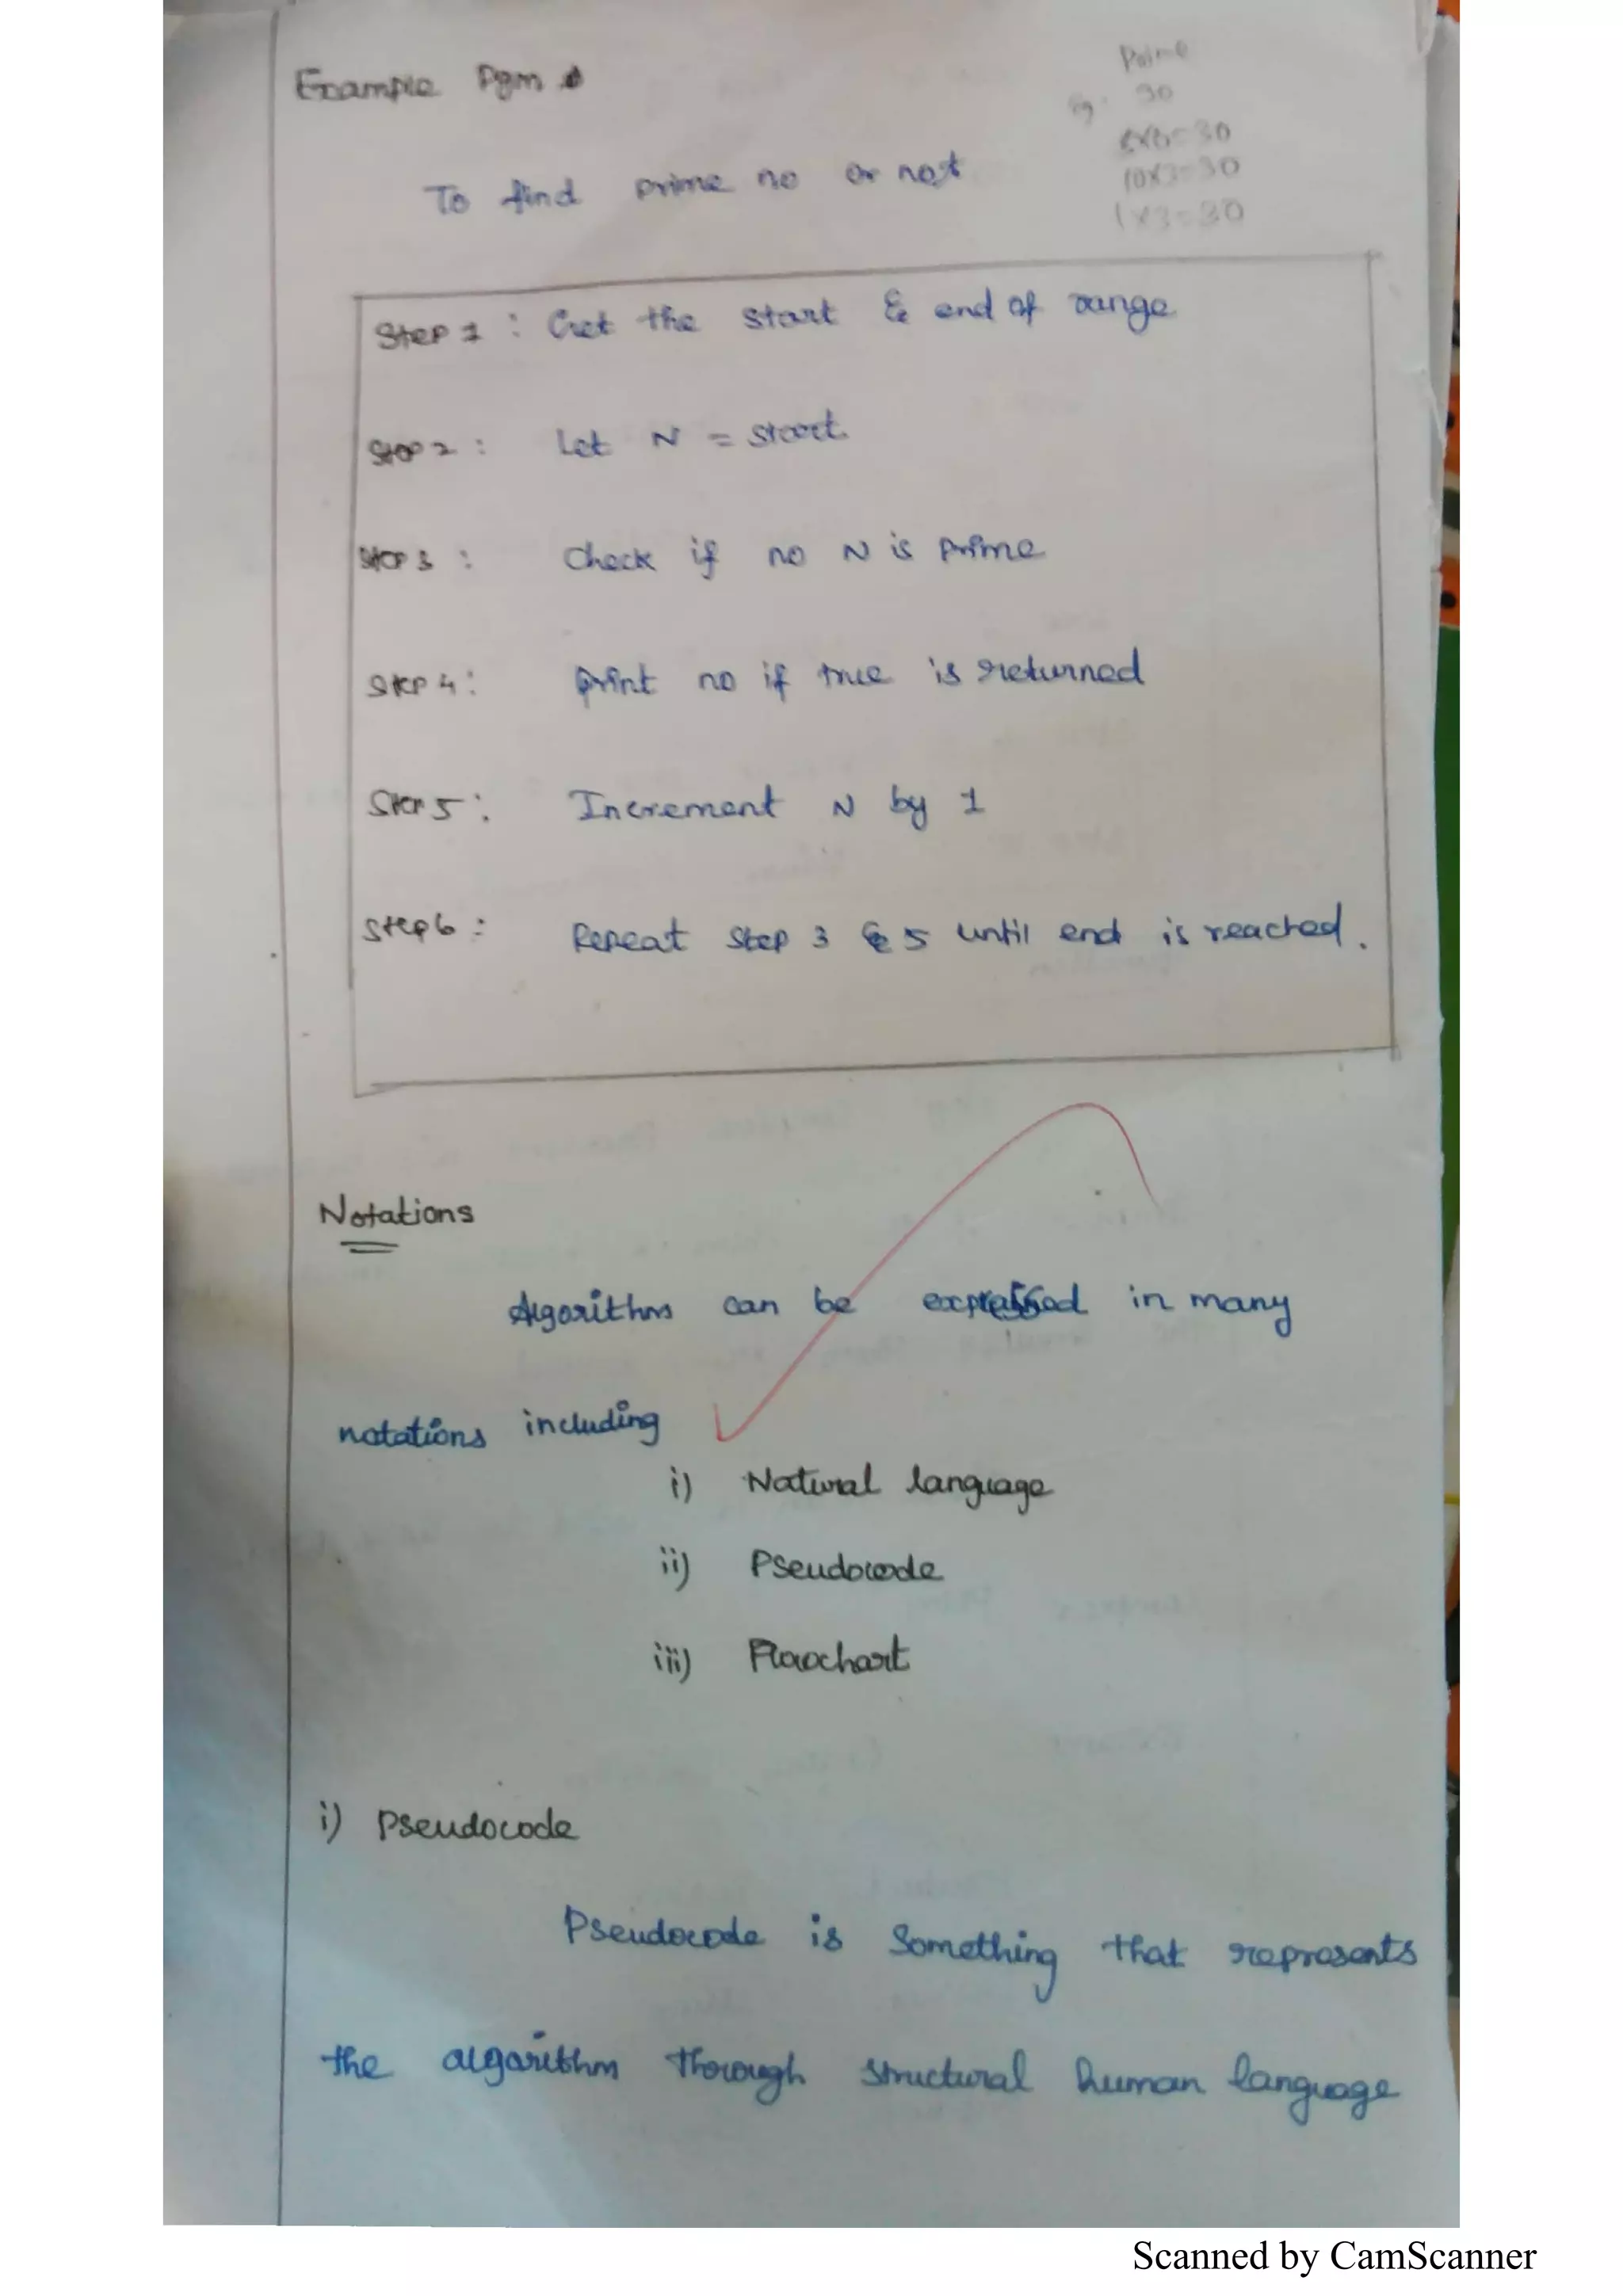 Example Pgm
Prime
eg. 30
5x6=30
10x3=30
1x3=30
To find prime no or not
Step 1 : Get the start & end of range
Step 2 : Let N = start
Step 3 : Check if no N is prime
Step 4 : Print no if true is returned
Step 5 : Increment N by 1
Step 6 : Repeat step 3 & 5 until end is reached.
Notations
Algorithm can be expressed in many
notations including
i) Natural language
ii) Pseudocode
iii) Flowchart
i) Pseudocode
Pseudocode is something that represents
the algorithm thorough structural human language
Scanned by CamScanner